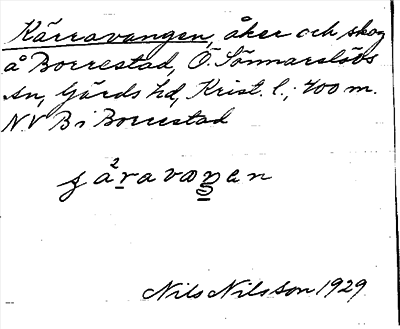 Kärravangen, åker och skog
å Borrestad, Ö. Sönnarslövs
sn, Gärds hd, Krist. l.; 400 m.
N.V B i Borrestad
ʒä²ravaŋen
Nils Nilsson 1929